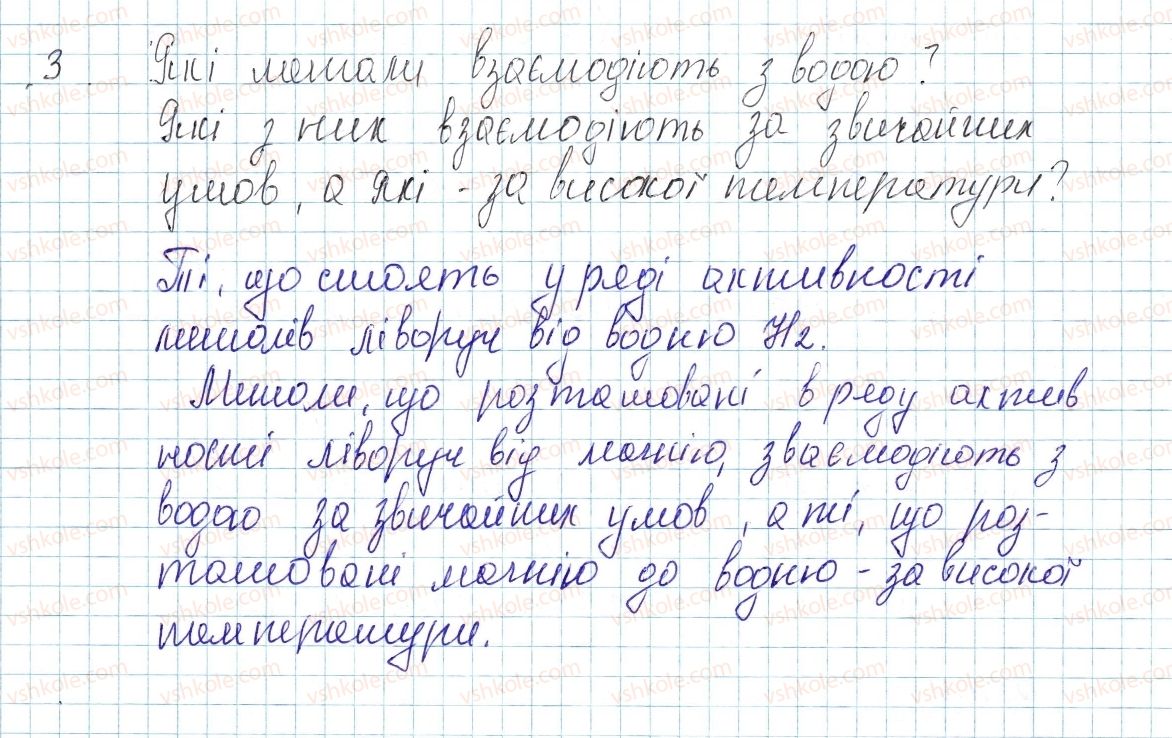 3 Які метали взаємодіють з водою?
Які з них взаємодіють за звичайних
умов, а які - за високої температури?
Ті, що стоять у ряді активності
металів ліворуч від водню H2.
Метали, що розташовані в ряду актив
ності ліворуч від магнію, зваємодіють з
водою за звичайних умов, а ті, що роз-
ташовані магнію до водню - за високої
температури.